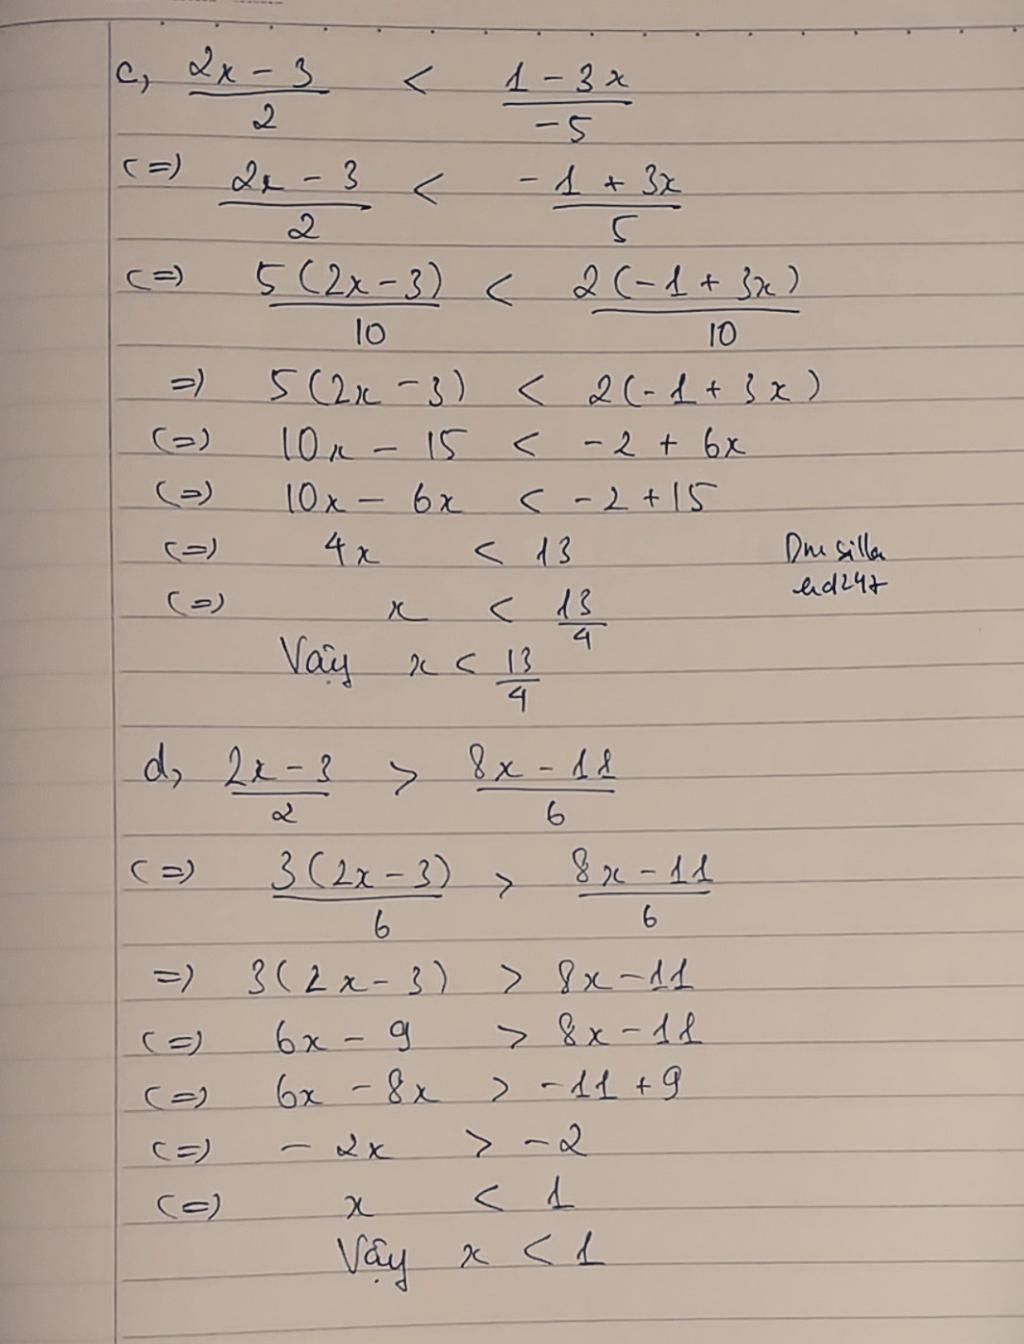 c, (2x - 3)/2 < (1 - 3x)/-5
(=) (2x - 3)/2 < (-1 + 3x)/5
(=) 5(2x - 3)/10 < 2(-1 + 3x)/10
=) 5(2x - 3) < 2(-1 + 3x)
(=) 10x - 15 < -2 + 6x
(=) 10x - 6x < -2 + 15
(=) 4x < 13
(=) x < 13/4
Vậy x < 13/4
d, (2x - 3)/2 > (8x - 11)/6
(=) 3(2x - 3)/6 > (8x - 11)/6
=) 3(2x - 3) > 8x - 11
(=) 6x - 9 > 8x - 11
(=) 6x - 8x > -11 + 9
(=) - 2x > -2
(=) x < 1
Vậy x < 1